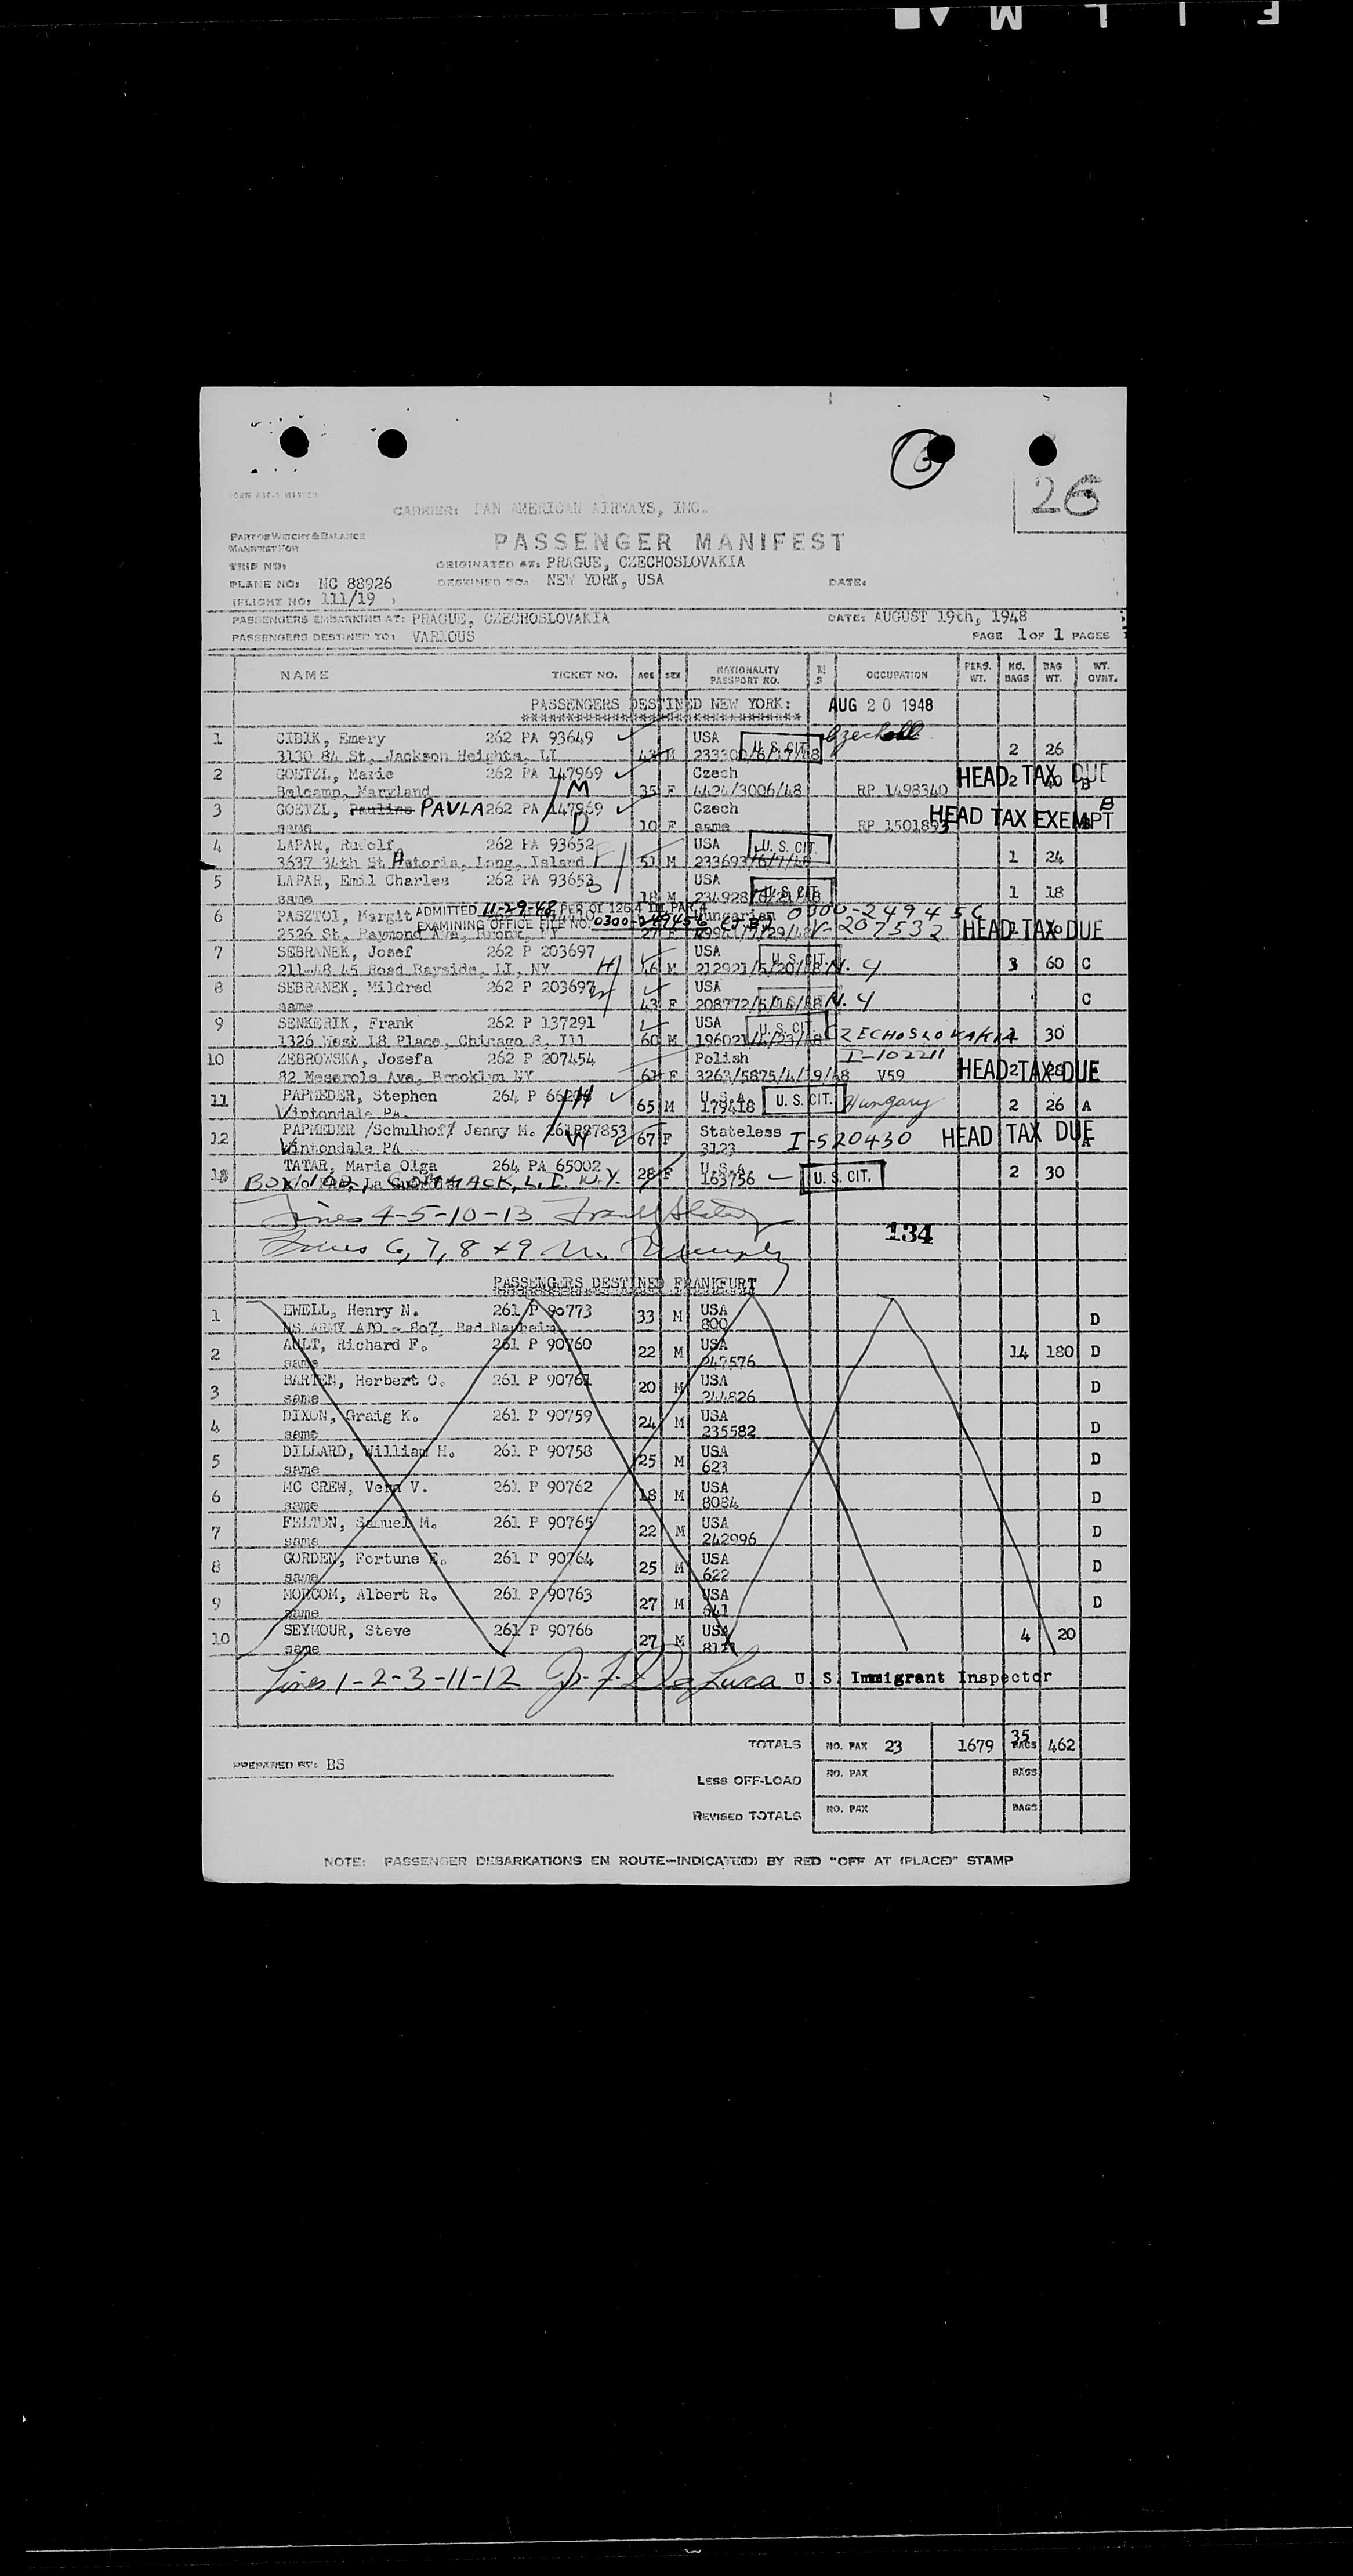 FILM
26
CARRIER: PAN AMERICAN AIRWAYS, INC.
PART OF WEIGHT & BALANCE
MANIFEST FOR
PASSENGER MANIFEST
TRIP NO:
ORIGINATED AT: PRAGUE, CZECHOSLOVAKIA
PLANE NO: NC 88926
DESTINED TO: NEW YORK, USA
DATE:
(FLIGHT NO: 111/19 )
PASSENGERS EMBARKING AT: PRAGUE, CZECHOSLOVAKIA DATE: AUGUST 19th, 1948
PASSENGERS DESTINED TO: VARIOUS PAGE 1 OF 1 PAGES
NAME TICKET NO. AGE SEX NATIONALITY PASSPORT NO. M S OCCUPATION PERS. WT. NO. BAGS BAG WT. WT. OVNT.
PASSENGERS DESTINED NEW YORK: AUG 20 1948
1 CIBIK, Emery 262 PA 93649 USA U. S. CIT.
3130 84 St, Jackson Heights, LI 43 M 2 26
2 GOETZL, Marie 262 PA 147969 Czech HEAD TAX DUE
Belcamp, Maryland M 35 F 4424/3006/48 RP 1498340 2 40 B
3 GOETZL, Pauline PAVLA 262 PA 147969 Czech HEAD TAX EXEMPT B
same D 10 F same RP 1501893
4 LAPAR, Rudolf 262 PA 93652 USA U. S. CIT.
3637 34th St Astoria, Long, Island 51 M 233693/6/7/48 1 24
5 LAPAR, Emil Charles 262 PA 93653 USA U. S. CIT.
same 18 M 1 18
6 PASZTOI, Margit ADMITTED 11-29-48 PER OI 126.4 III PAR. 4 Hungarian 0300-249456
2526 St, Raymond Ave, Bronx, NY EXAMINING OFFICE FILE NO. 0300-249456 27 F V-207532 HEAD TAX DUE
7 SEBRANEK, Josef 262 P 203697 USA U. S. CIT.
211-48 45 Road Bayside, LI, NY H 46 M 212921/5/20/48 N. Y 3 60 C
8 SEBRANEK, Mildred 262 P 203697 USA
same W 43 F 208772/5/16/48 N. Y C
9 SENKERIK, Frank 262 P 137291 USA U. S. CIT.
1326 West 18 Place, Chicago 8, Ill 60 M CZECHOSLOVAKIA 1 30
10 ZEBROWSKA, Jozefa 262 P 207454 Polish I-102211
82 Meserole Ave, Brooklyn NY 61 F 3263/5875/4/19/48 V59 HEAD TAX DUE 2 28
11 PAPMEDER, Stephen 264 P H U.S.A. U. S. CIT. Hungary
Vintondale PA. 65 M 179418 2 26 A
12 PAPMEDER /Schulhof/ Jenny M. 261P87853 W 67 F Stateless I-520430 HEAD TAX DUE A
Vintondale PA 3123
13 TATAR, Maria Olga 264 PA 65002 28 F U.S.A. U. S. CIT. 2 30
BOX 102, COMMACK, L.I. N.Y. 163756
Lines 4-5-10-13
134
Lines 6, 7, 8 & 9
PASSENGERS DESTINED FRANKFURT
1 EWELL, Henry N. 261 P 90773 33 M USA
US ARMY APO - 807, Bad Nauheim 800 D
2 AULT, Richard F. 261 P 90760 22 M USA 14 180 D
same 247576
3 HARTEN, Herbert O. 261 P 90761 20 M USA D
same 244826
4 DIXON, Graig K. 261 P 90759 24 M USA D
same 235582
5 DILLARD, William H. 261 P 90758 25 M USA D
same 623
6 MC CREW, Vern V. 261 P 90762 18 M USA D
same 8084
7 FELTON, Samuel M. 261 P 90765 22 M USA D
same 242996
8 GORDEN, Fortune E. 261 P 90764 25 M USA D
same 622
9 MORCOM, Albert R. 261 P 90763 27 M USA D
same 641
10 SEYMOUR, Steve 261 P 90766 27 M USA 4 20
same
Lines 1-2-3-11-12 U. S. Immigrant Inspector
TOTALS NO. PAX 23 1679 35 BAGS 462
PREPARED BY: BS
LESS OFF-LOAD NO. PAX BAGS
REVISED TOTALS NO. PAX BAGS
NOTE: PASSENGER DEBARKATIONS EN ROUTE—INDICATE(D) BY RED "OFF AT (PLACE)" STAMP